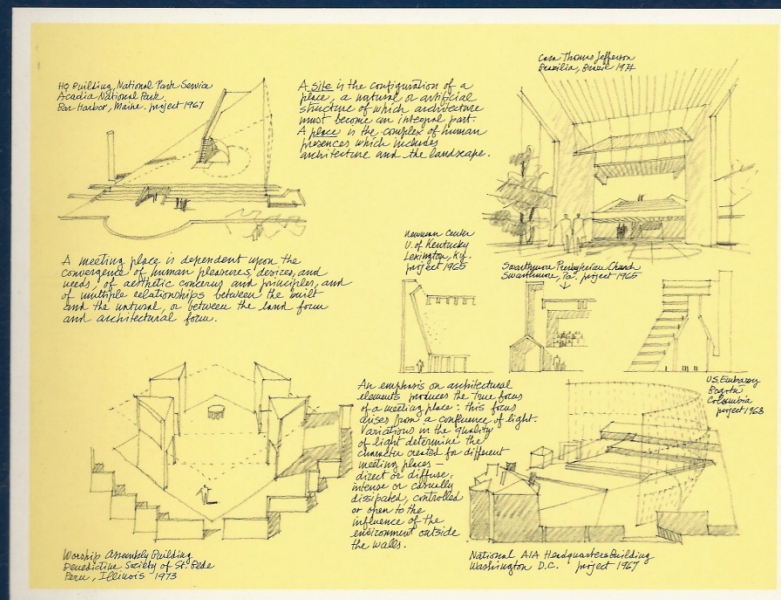 HQ Building, National Park Service
Acadia National Park,
Bar Harbor, Maine. project 1967
A site is the configuration of a
place, a natural or artificial
structure of which architecture
must become an integral part.
A place is the complex of human
presences which includes
architecture and the landscape.
Casa Thomas Jefferson
Brasilia, Brasil 1974
A meeting place is dependent upon the
convergence of human pleasures, desires, and
needs, of aesthetic concerns and principles, and
of multiple relationships between the built
and the natural, or between the land form
and architectural form.
Newman Center
U. of Kentucky
Lexington, Ky.
project 1965
Swarthmore Presbyterian Church
Swarthmore, Pa. project 1965
U.S. Embassy
Bogotá
Columbia
project 1963
An emphasis on architectural
elements produces the true focus
of a meeting place: this focus
arises from a confluence of light.
Variations in the quality
of light determine the
character created for different
meeting places —
direct or diffuse,
intense or casually
dissipated, controlled
or open to the
influence of the
environment outside
the walls.
Worship Assembly Building
Benedictine Society of St. Bede
Peru, Illinois 1973
National AIA Headquarters Building
Washington D.C. project 1967